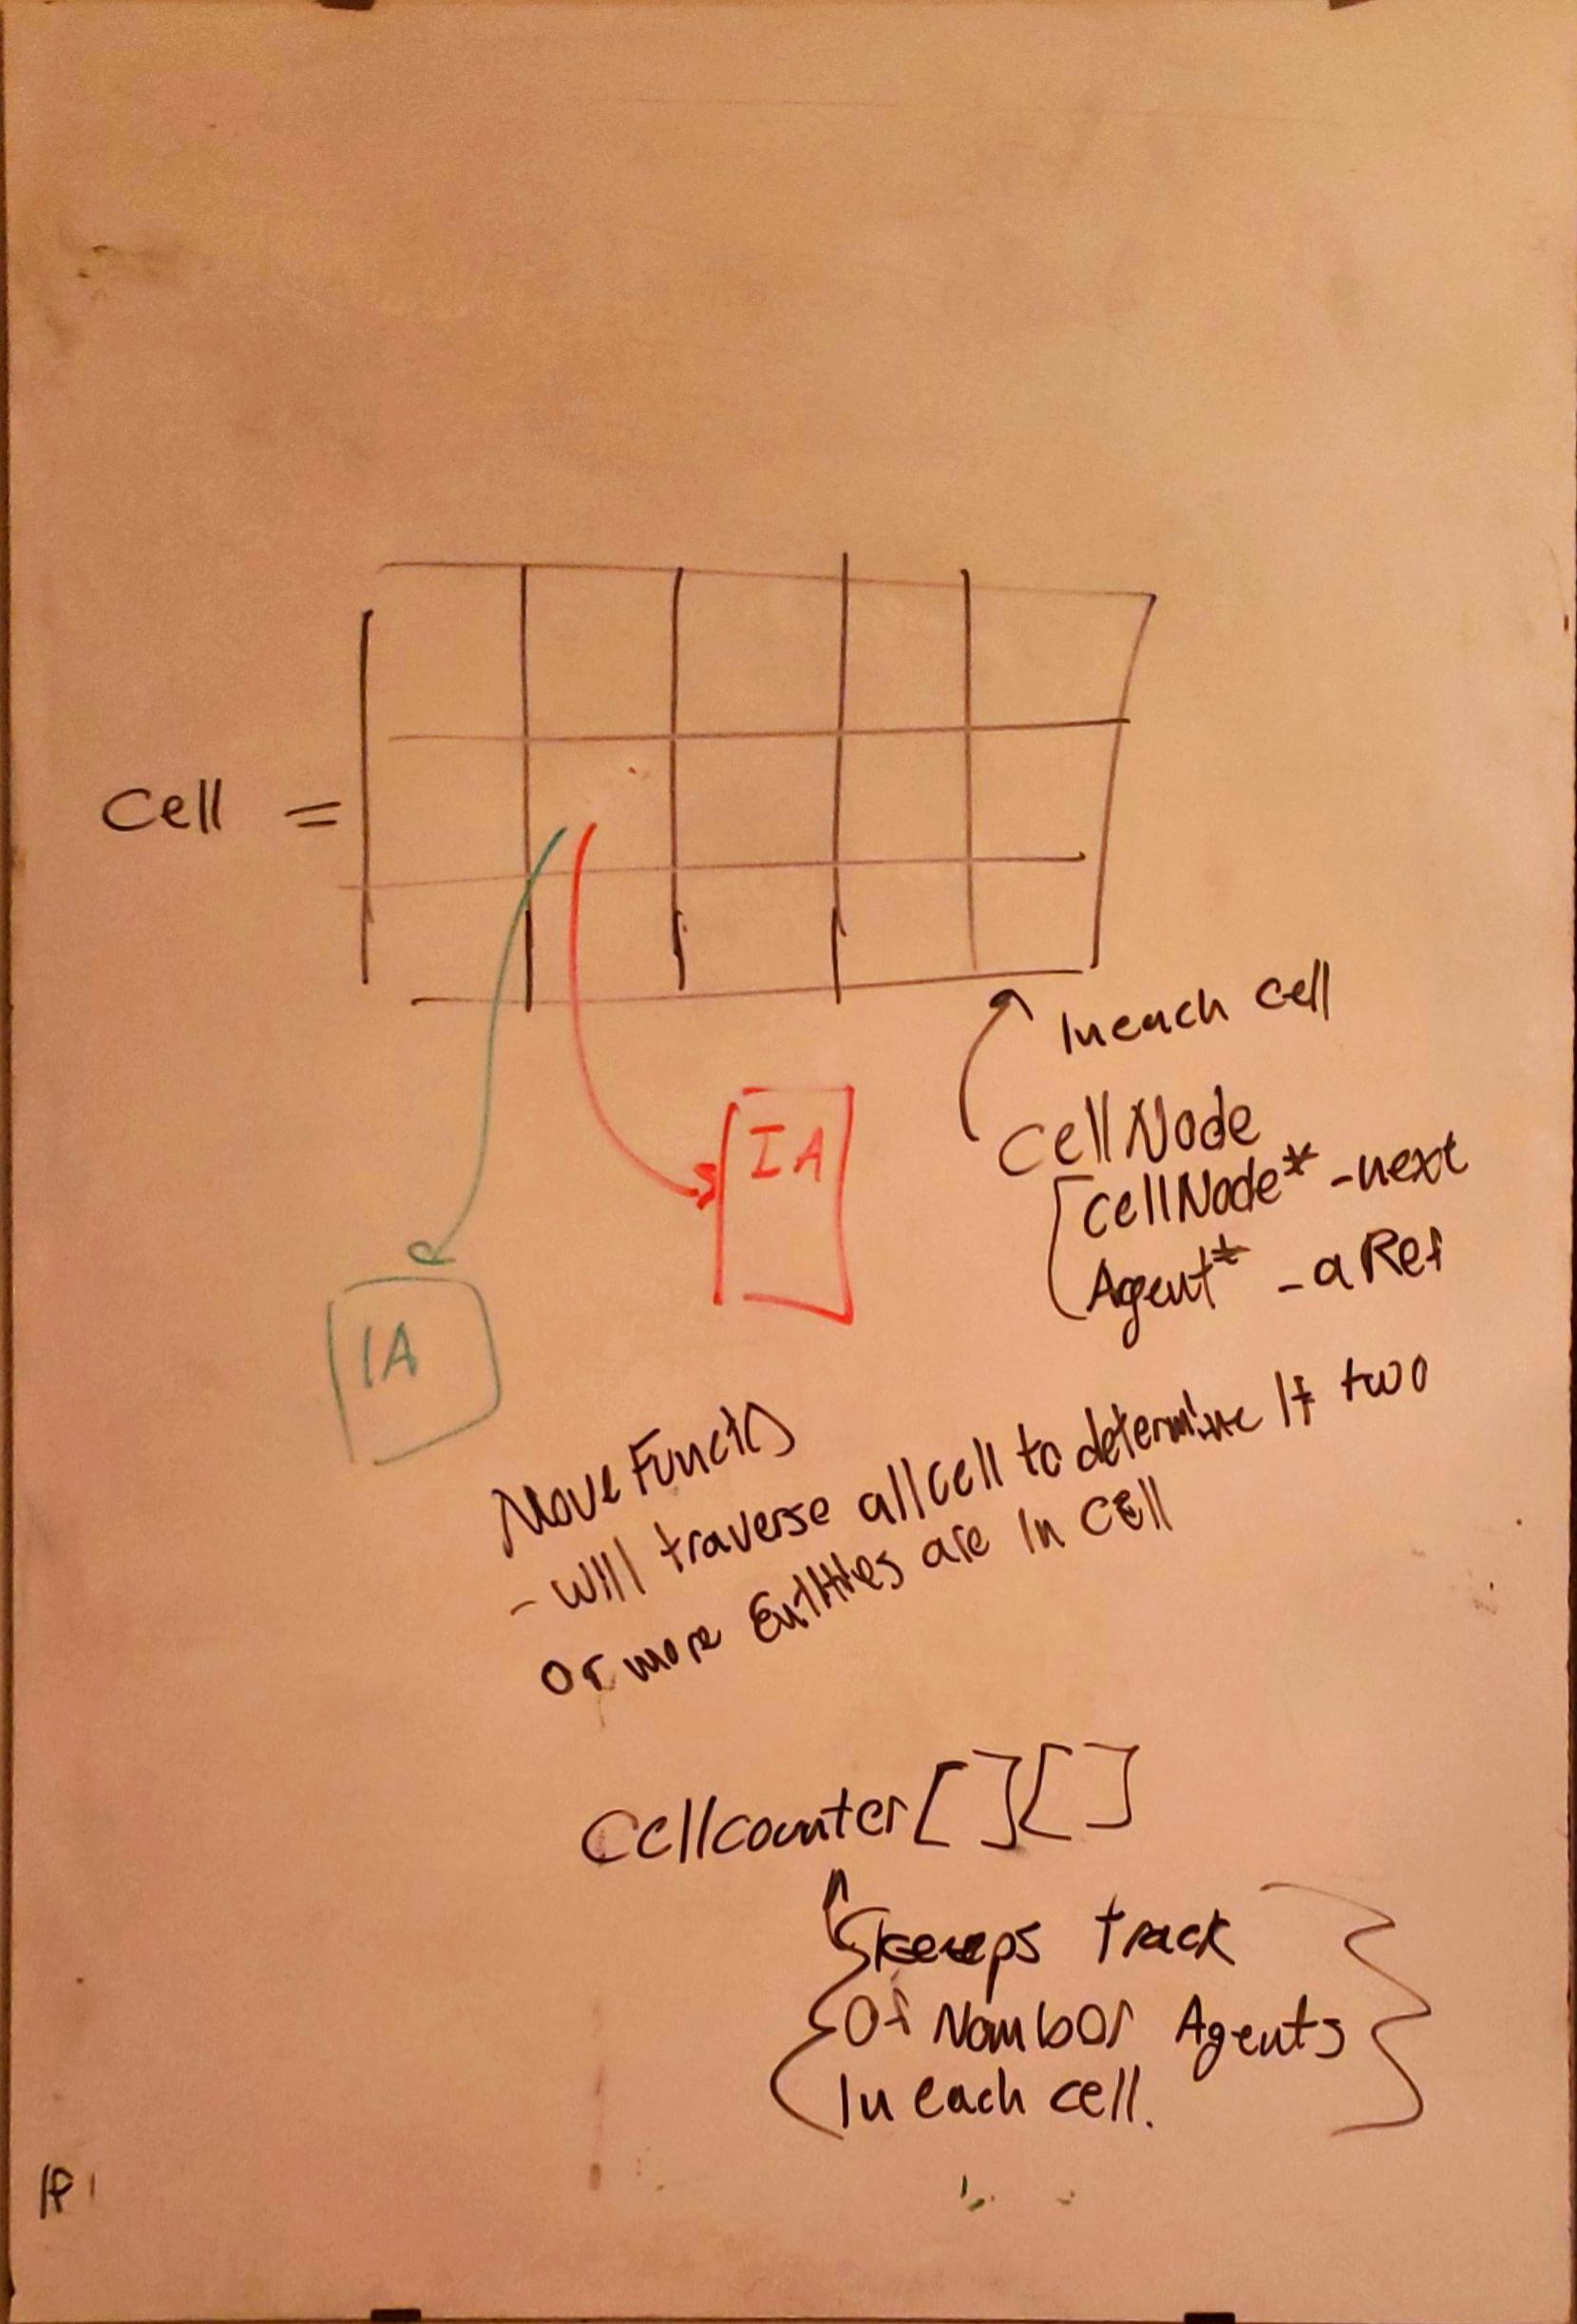 Cell =
In each cell
CellNode
CellNode* -next
Agent* -aRef
IA
IA
Move Funct()
- will traverse all cell to determine If two
Or more Entities are In Cell
Cellcounter[][]
keeps track
Of Nombor Agents
In each cell.